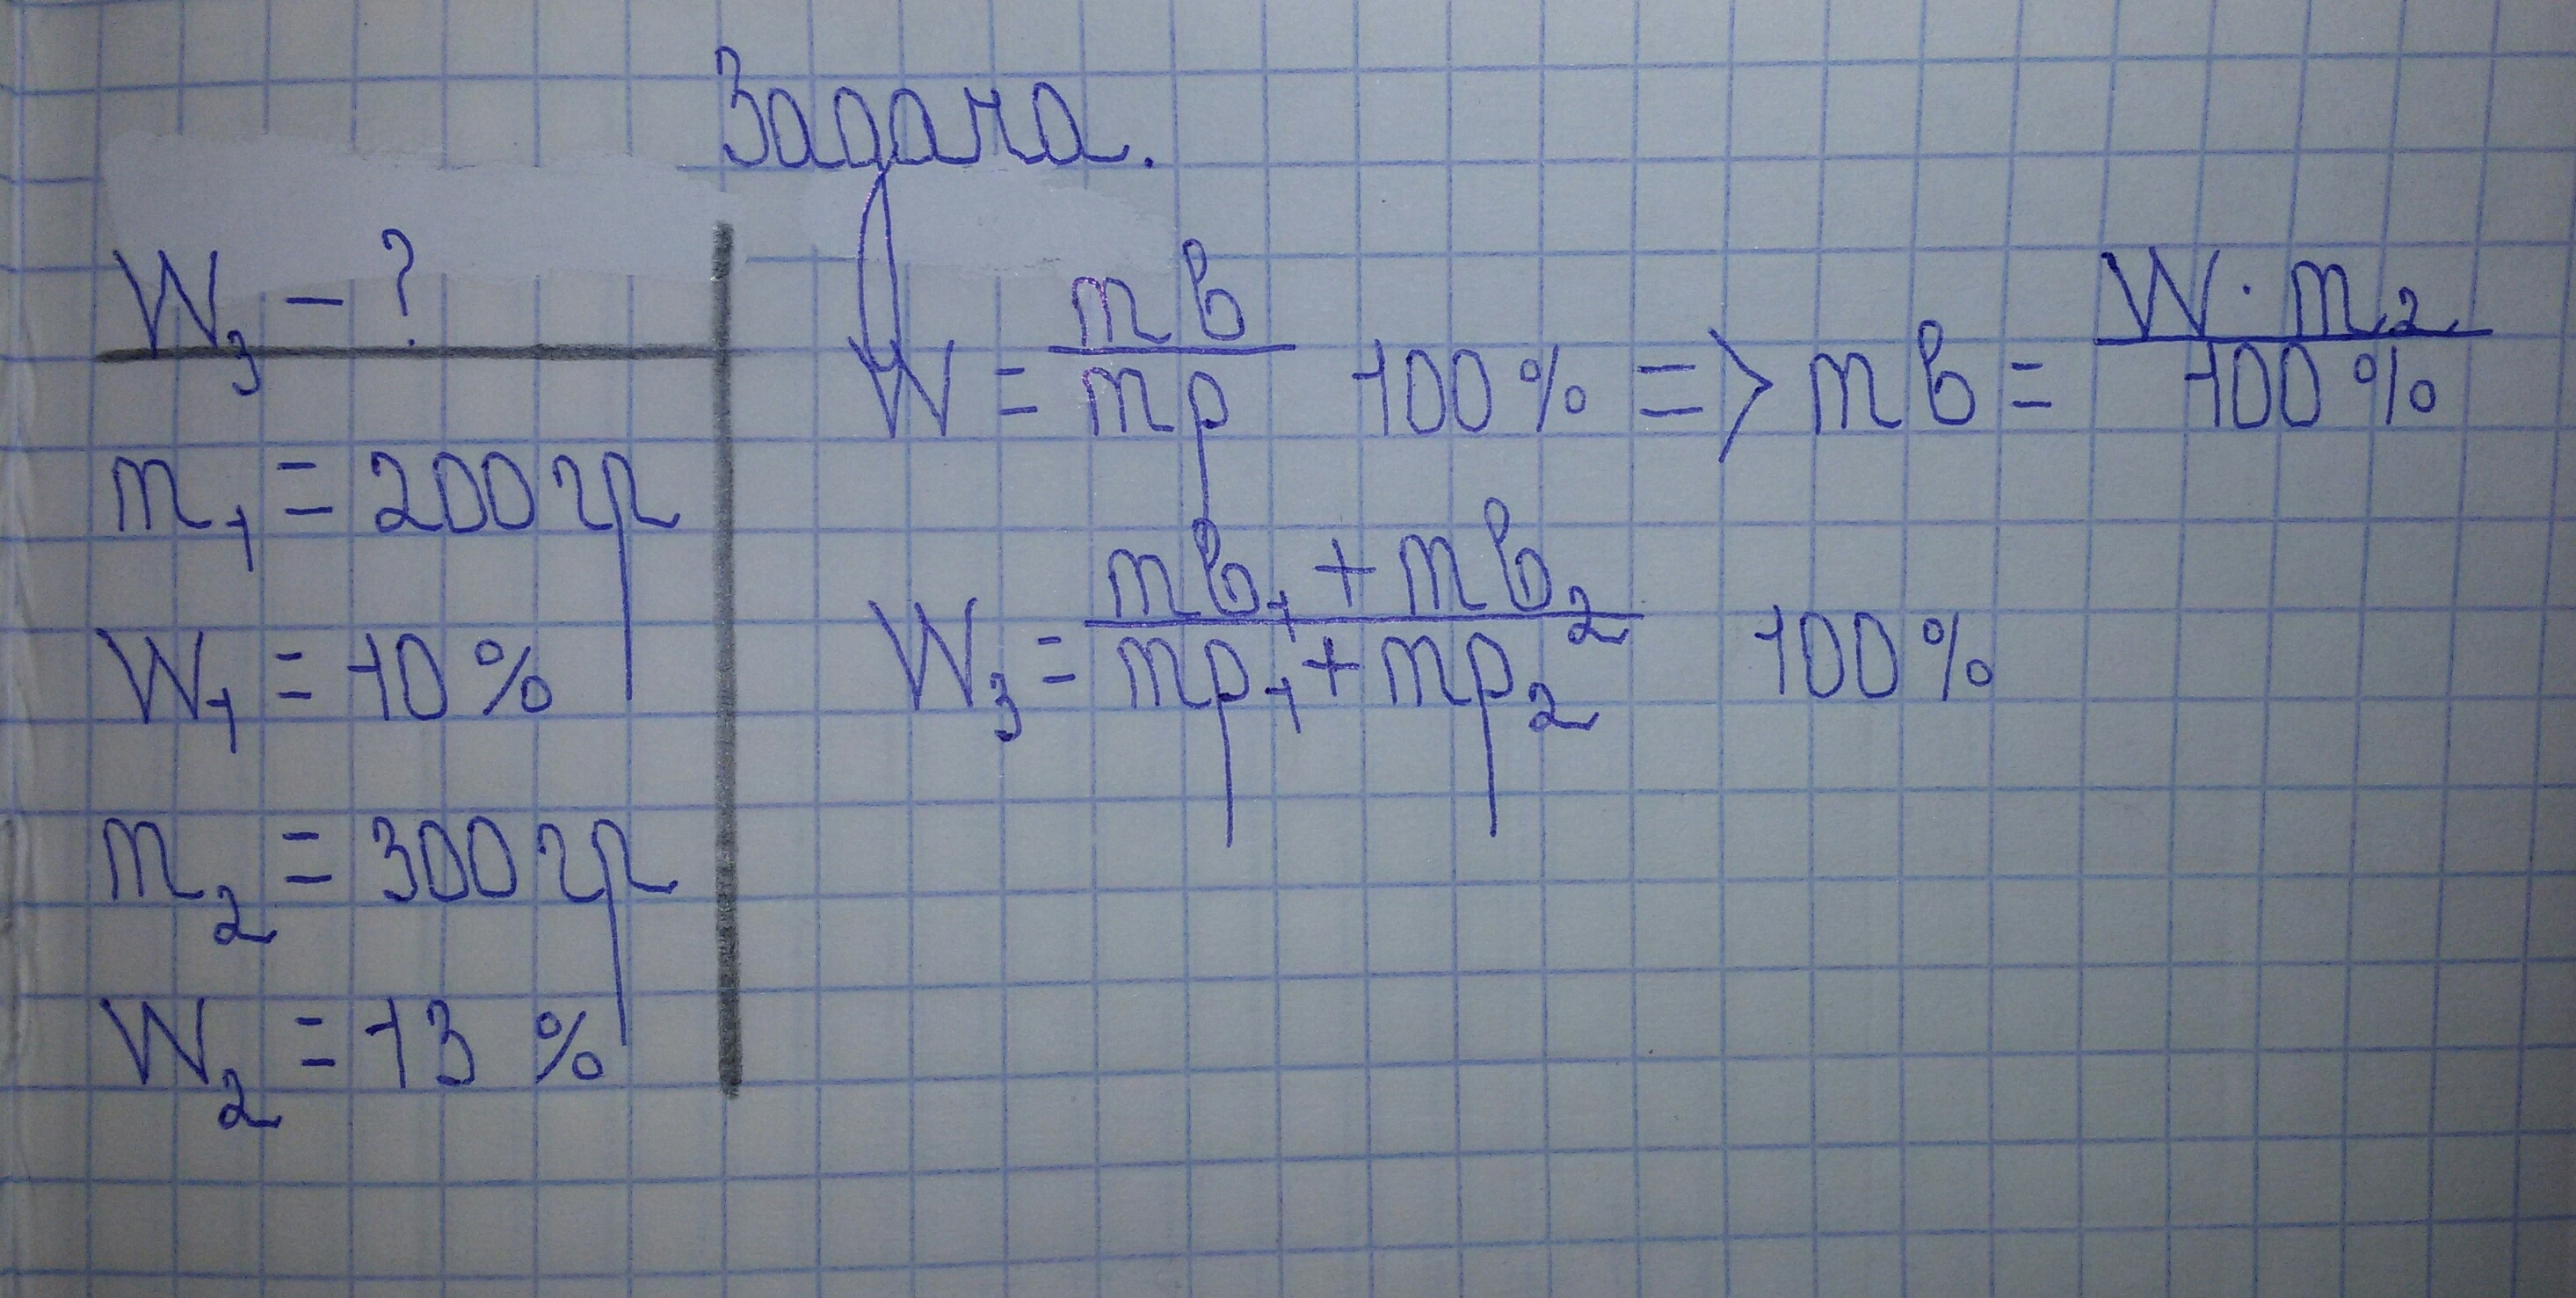 Задача.
W₃ – ?
m₁ = 200 гр
W₁ = 10 %
m₂ = 300 гр
W₂ = 13 %
W = mв / mр 100 % => mв = W · m₂ / 100 %
W₃ = mв₁ + mв₂ / mр₁ + mр₂ 100 %